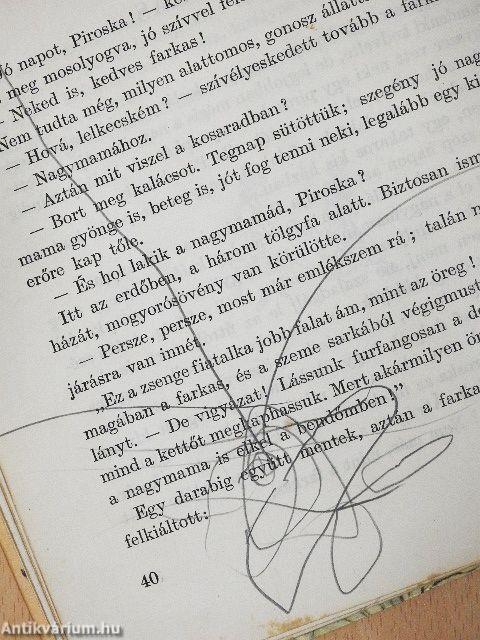 Jó napot, Piroska! —
meg mosolyogva, jó szívvel
— Neked is, kedves farkas!
Nem tudta még, milyen alattomos, gonosz
— Hová, lelkecském? — szívélyeskedett tovább a
— Nagymamához.
— Aztán mit viszel a kosaradban?
— Bort meg kalácsot. Tegnap sütöttük; szegény jó
mama gyönge is, beteg is, jót fog tenni neki, legalább egy
erőre kap tőle.
— És hol lakik a nagymamád, Piroska?
Itt az erdőben, a három tölgyfa alatt. Biztosan
házát, mogyorósövény van körülötte.
— Persze, persze, most már emlékszem rá; talán
járásra van innét.
„Ez a zsenge fiatalka jobb falat ám, mint az öreg!
magában a farkas, és a szeme sarkából
lányt. — De vigyázat! Lássunk furfangosan a
mind a kettőt megkaphassuk. Mert akármilyen
a nagymama is elkel a bendőmben.”
Egy darabig együtt mentek, aztán a
felkiáltott:
40
Antikvárium.hu